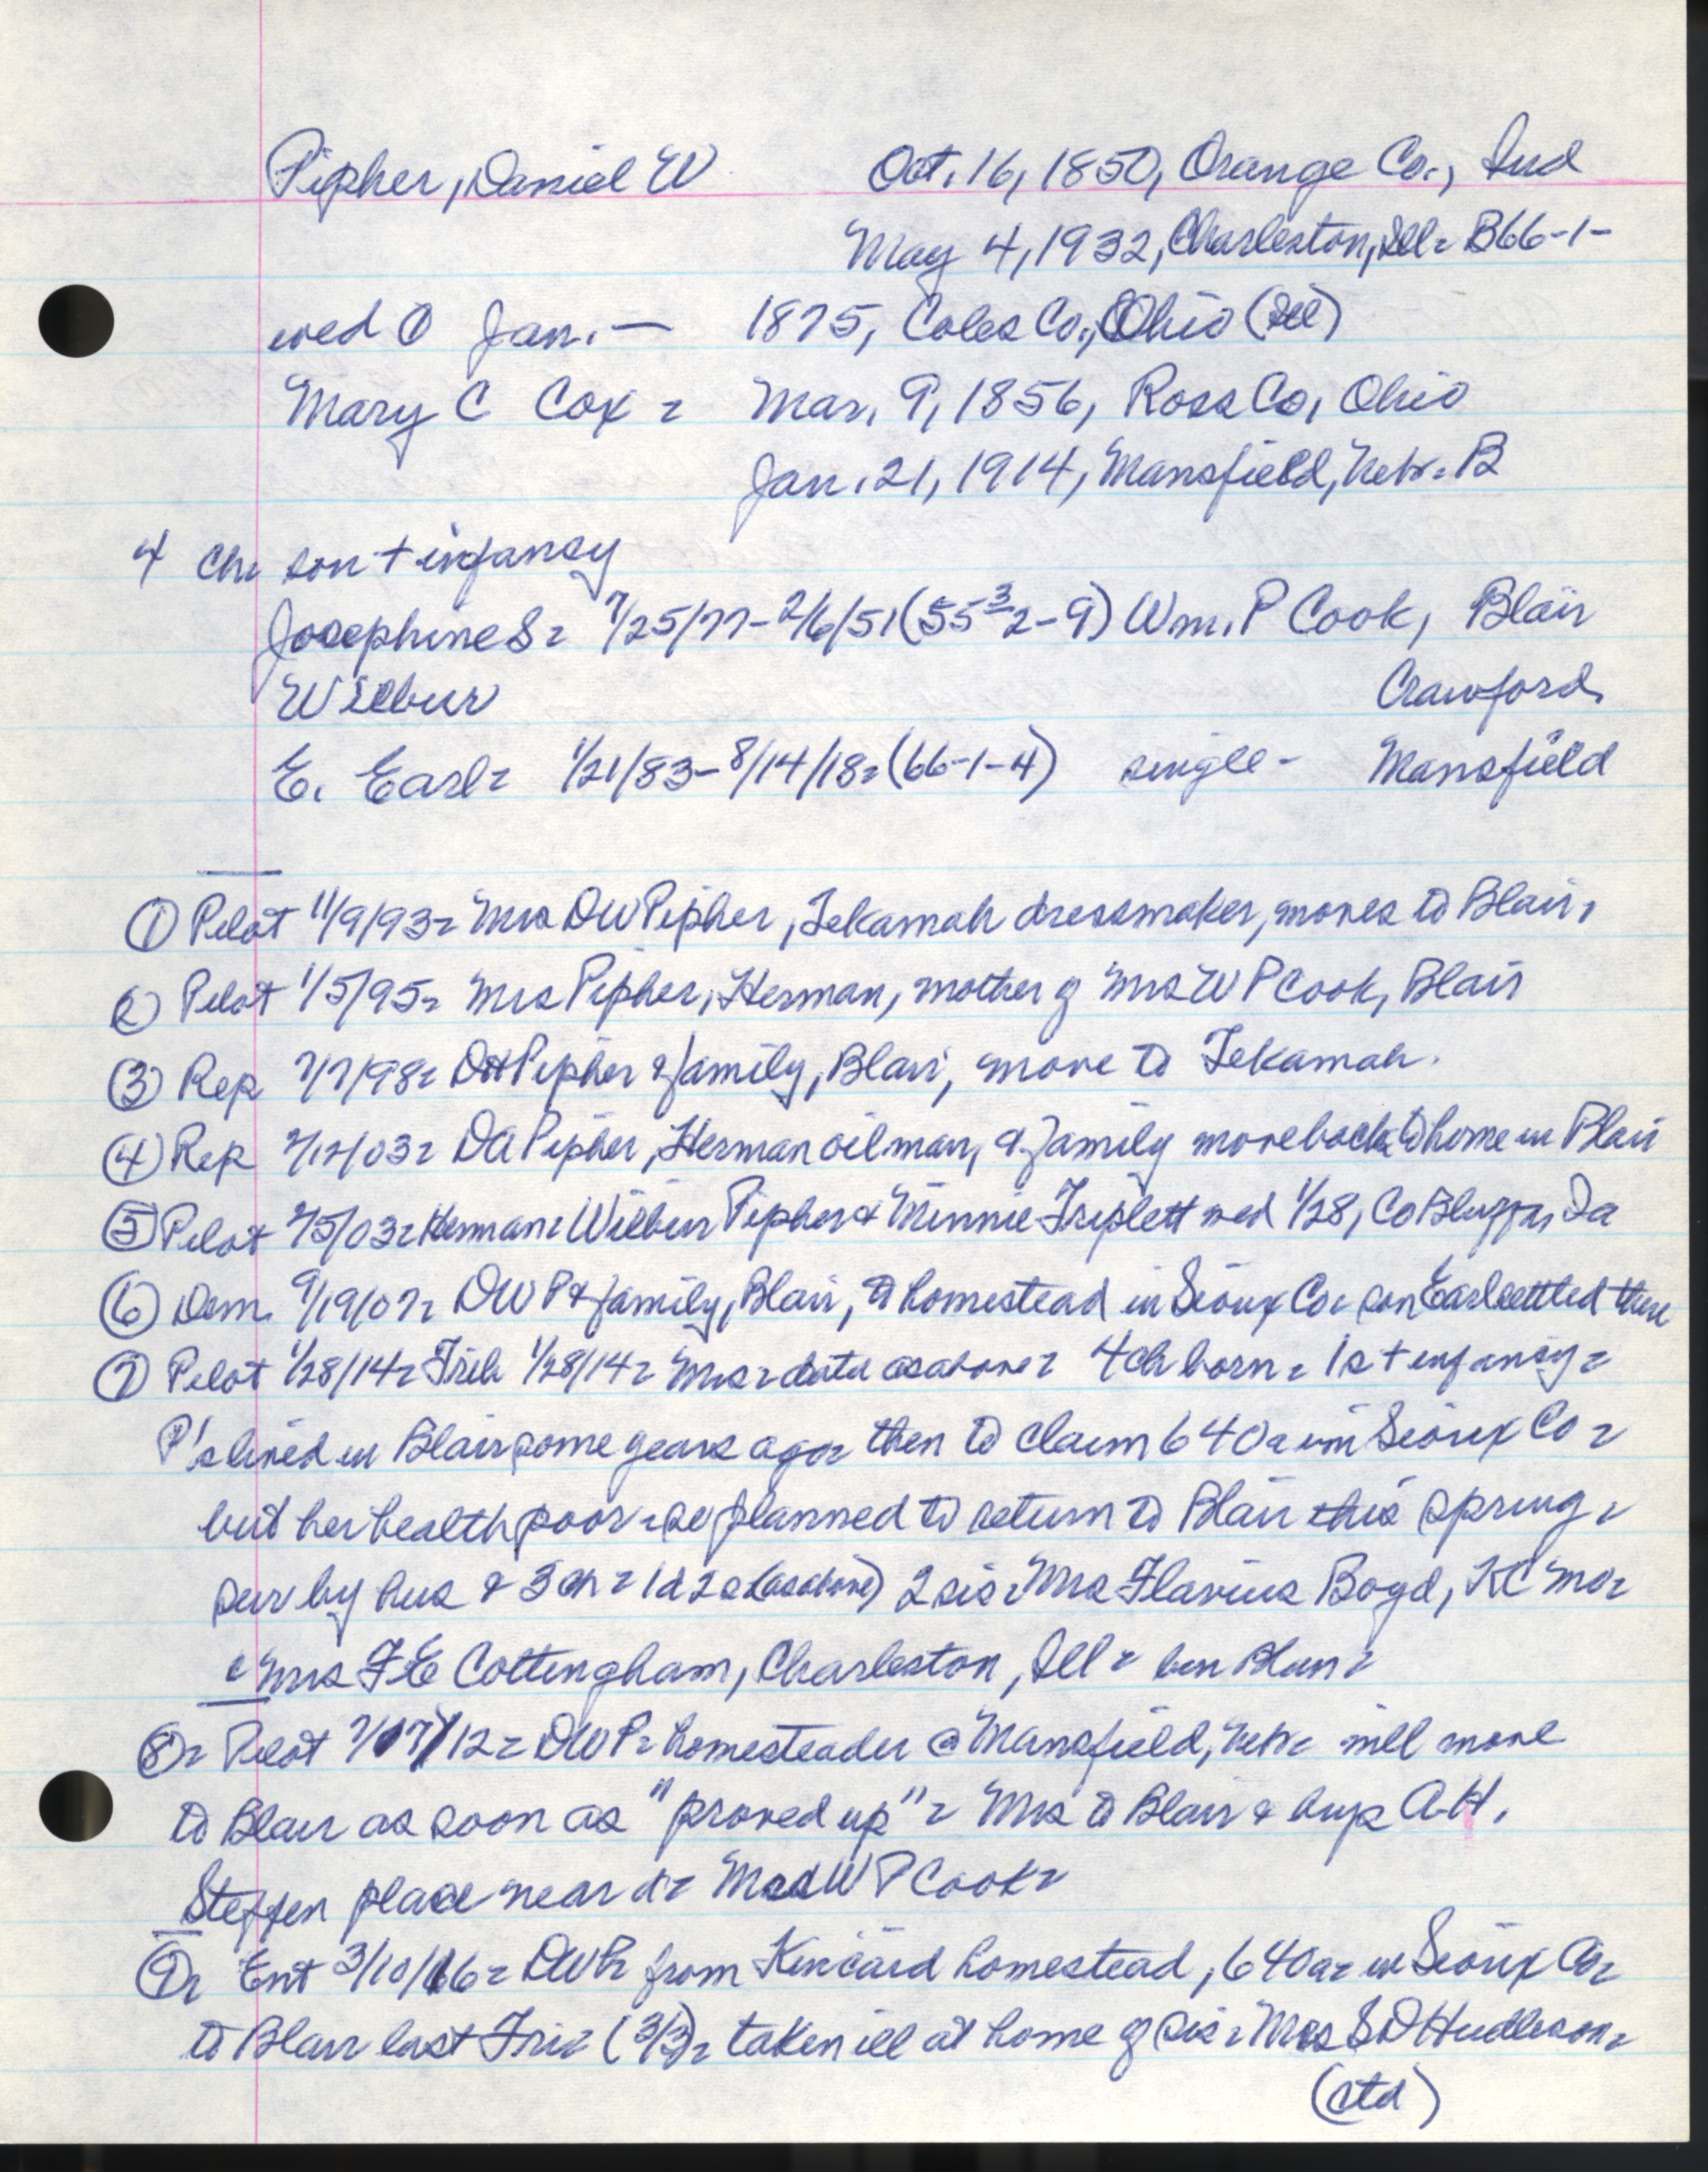 Pipher, Daniel W. Oct. 16, 1850, Orange Co., Ind
May 4, 1932, Charleston, Ill = B66-1-
wed ① Jan. — 1875, Coles Co., Ohio (Ill)
Mary C Cox = Mar. 9, 1856, Ross Co, Ohio
Jan. 21, 1914, Mansfield, Nebr = B
4 Ch. son + infancy
Josephine S = 7/25/77 - 2/6/51 (55³2-9) Wm. P Cook, Blair
Wilbur Crawford
E. Earl = 1/21/83 - 8/14/18 = (66-1-4) single - Mansfield
① Pilot 11/9/93 = Mrs DW Pipher, Tekamah dressmaker, moves to Blair.
② Pilot 1/5/95 = Mrs Pipher, Herman, mother of Mrs W P Cook, Blair
③ Rep 7/7/98 = DH Pipher & family, Blair, move to Tekamah.
④ Rep 2/12/03 = DA Pipher, Herman oil man, & family move back to home in Blair
⑤ Pilot 2/5/03 = Herman = Wilbur Pipher & Minnie Triplett wed 1/28, Co Bluffs, Ia
⑥ Dem. 9/19/07 = DW P & family, Blair, to homestead in Sioux Co = son Earl settled there
⑦ Pilot 1/28/14 = Trib 1/28/14 = Mrs = data as above = 4 ch born = 1 s + infancy =
P's lived in Blair some years ago = then to claim 640 a in Sioux Co =
but her health poor = so planned to return to Blair this spring =
surv by hus & 3 ch = 1 d 2 s (as above) 2 sis = Mrs Flavius Boyd, KC Mo =
& Mrs F E Cottingham, Charleston, Ill = bur Blair =
⑧ = Pilot 7/17/12 = DW P = homesteader @ Mansfield, Nebr = will move
to Blair as soon as "proved up" = Mrs to Blair & buys A.H.
Steffen place near d = Mrs W P Cook =
⑨ = Ent 3/10/16 = DWP = from Kincaid homestead, 640 a = in Sioux Co =
to Blair last Fri = (3/3) = taken ill at home of sis = Mrs S D Hudleson =
(ctd)